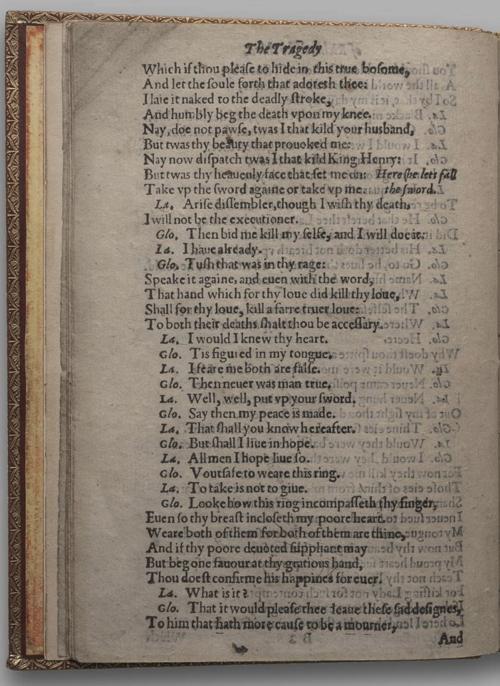 The Tragedy
Which if thou please to hide in this true bosome,
And let the soule forth that adoreth thee:
I laie it naked to the deadly stroke,
And humbly beg the death vpon my knee.
Nay, doe not pawse, twas I that kild your husband,
But twas thy beauty that prouoked me:
Nay now dispatch twas I that kild King Henry:
But twas thy heauenly face that set me on: Here she lets fall
Take vp the sword againe or take vp me. the sword.
La. Arise dissembler, though I wish thy death,
I will not be the executioner.
Glo. Then bid me kill my selfe, and I will doe it.
La. I haue already.
Glo. Tush that was in thy rage:
Speake it againe, and euen with the word,
That hand which for thy loue did kill thy loue,
Shall for thy loue, kill a farre truer loue:
To both their deaths shalt thou be accessary.
La. I would I knew thy heart.
Glo. Tis figured in my tongue.
La. I feare me both are false.
Glo. Then neuer was man true.
La. Well, well, put vp your sword.
Glo. Say then my peace is made.
La. That shall you know hereafter.
Glo. But shall I liue in hope.
La. All men I hope liue so.
Glo. Voutsafe to weare this ring.
La. To take is not to giue.
Glo. Looke how this ring incompasseth thy finger,
Euen so thy breast incloseth my poore heart.
Weare both of them for both of them are thine,
And if thy poore deuoted suppliant may
But beg one fauour at thy gratious hand,
Thou doest confirme his happines for euer.
La. What is it?
Glo. That it would please thee leaue these sad designes,
To him that hath more cause to be a mourner,
And